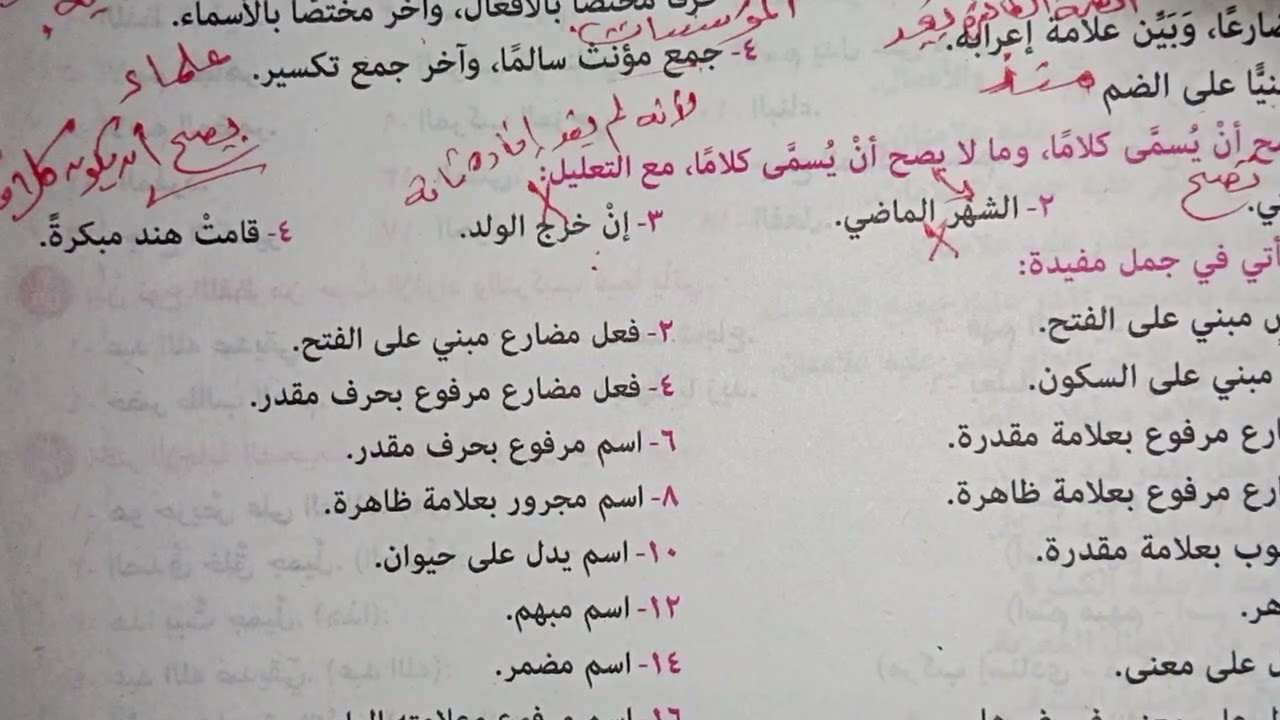 مختصًا بالأفعال، وآخر مختصًا بالأسماء.
المؤسسات
ضارعًا، وَبَيِّن علامة إعرابه.
٤- جمع مؤنث سالمًا، وآخر جمع تكسير. علماء
نيًّا على الضم منذ
لأنه لم يفد
يصح أن يكون كلام
أنْ يُسمَّى كلامًا، وما لا يصح أنْ يُسمَّى كلامًا، مع التعليل:
يصح
٢- الشهر الماضي.
٣- إنْ خرج الولد.
٤- قامتْ هند مبكرةً.
أتي في جمل مفيدة:
مبني على الفتح.
٢- فعل مضارع مبني على الفتح.
مبني على السكون.
٤- فعل مضارع مرفوع بحرف مقدر.
ارع مرفوع بعلامة مقدرة.
٦- اسم مرفوع بحرف مقدر.
ارع مرفوع بعلامة ظاهرة.
٨- اسم مجرور بعلامة ظاهرة.
وب بعلامة مقدرة.
١٠- اسم يدل على حيوان.
هر.
١٢- اسم مبهم.
على معنى.
١٤- اسم مضمر.
١٦- اسم مرفوع